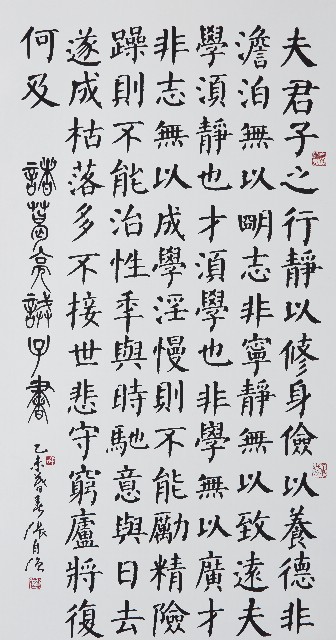 夫君子之行靜以修身儉以養德非
澹泊無以明志非寧靜無以致遠夫
學須靜也才須學也非學無以廣才
非志無以成學淫慢則不能勵精險
躁則不能治性年與時馳意與日去
遂成枯落多不接世悲守窮廬將復
何及
諸葛亮誡子書
乙未暮春張